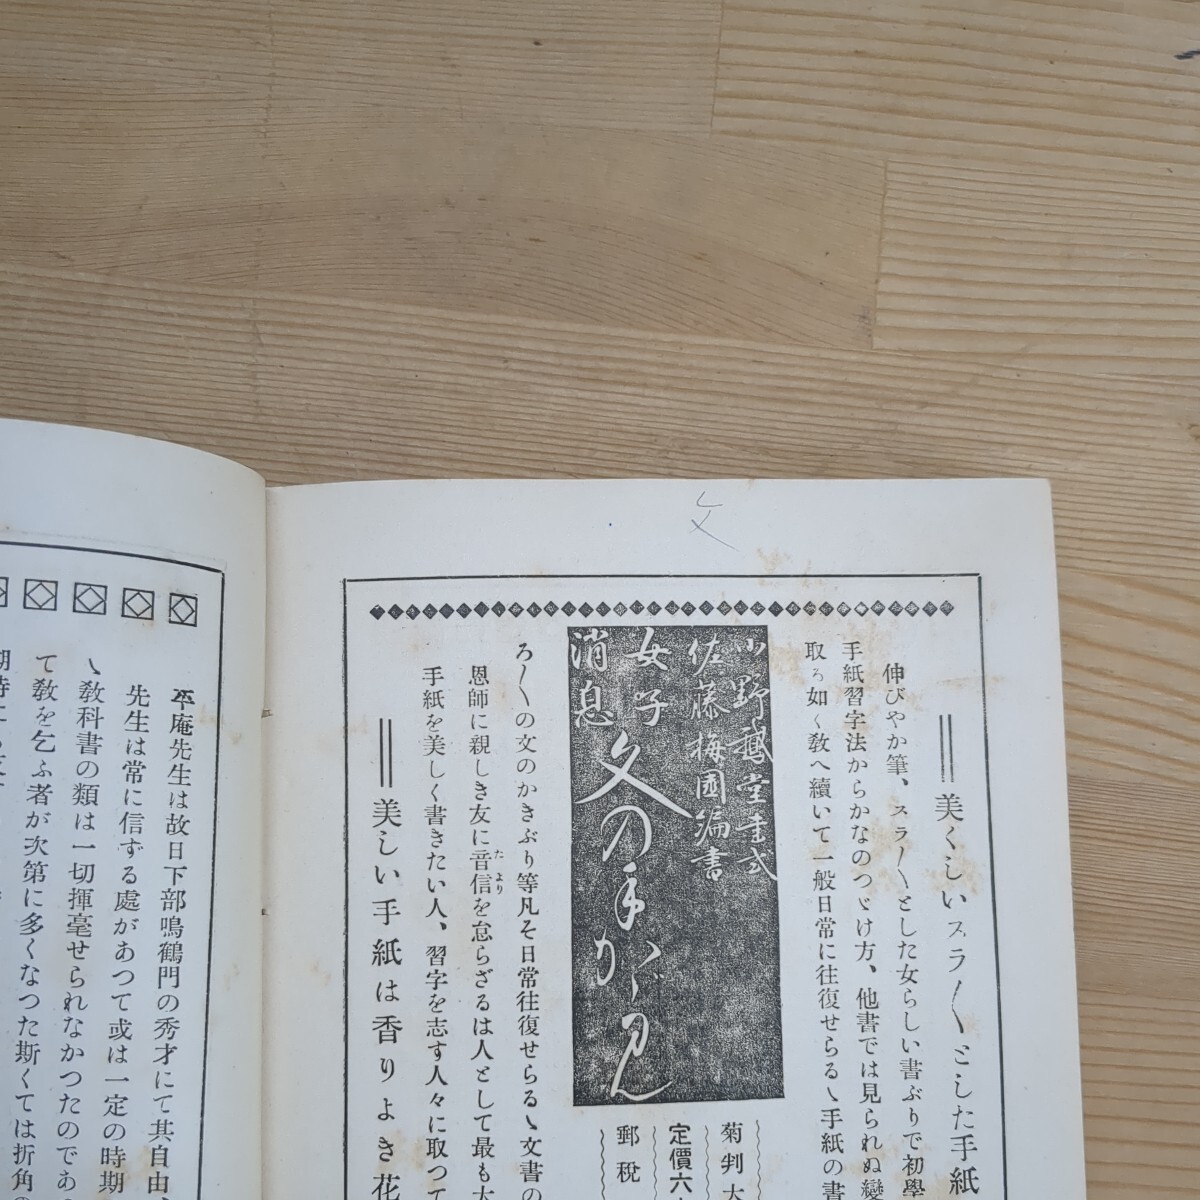 文
美くしいスラ〳〵とした手紙
伸びやか筆、スラ〳〵とした女らしい書ぶりで初學
手紙習字法からかなのつゞけ方、他書では見られぬ變
取ろ如く敎へ續いて一般日常に往復せらるゝ手紙の書
小野鵞堂書式
佐藤梅園編書
女子
消息
文の手がゞみ
菊判大
定價六
郵稅
ろ〳〵の文のかきぶり等凡そ日常往復せらるゝ文書の
恩師に親しき友に音信を怠らざるは人として最も大
たより
手紙を美しく書きたい人、習字を志す人々に取つて
美しい手紙は香りよき花
平庵先生は故日下部鳴鶴門の秀才にて其自由
先生は常に信ずる處があつて或は一定の時期
ゝ敎科書の類は一切揮毫せられなかつたのであ
て敎を乞ふ者が次第に多くなつた斯くては折角の